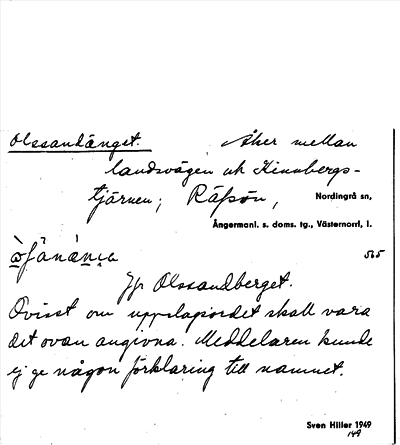 Olssandänget. Åker mellan
landsvägen och Kinnbergs-
tjärnen; Räfsön, Nordingrå sn,
Ångermanl. s. doms. tg., Västernorrl. l.
565
Jfr Olssandberget.
Ovisst om uppslagsordet skall vara
det ovan angivna. Meddelaren kunde
ej ge någon förklaring till namnet.
Sven Hiller 1949
149